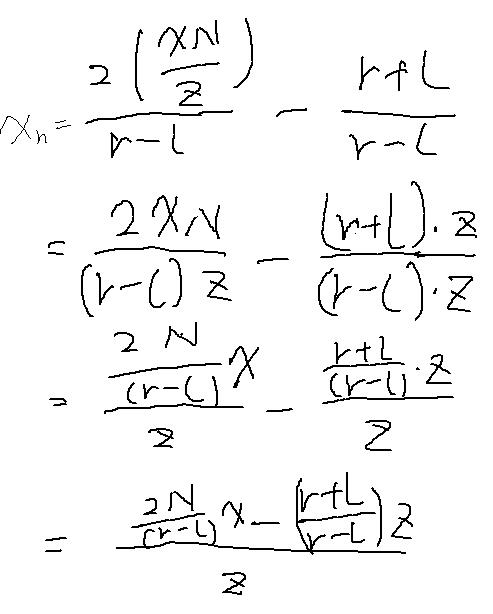 x_n = \frac{2\left(\frac{xN}{z}\right)}{r-l} - \frac{r+L}{r-L}
= \frac{2xN}{(r-l)z} - \frac{(r+L) \cdot z}{(r-l) \cdot z}
= \frac{\frac{2N}{(r-l)}x}{z} - \frac{\frac{r+L}{(r-l)} \cdot z}{z}
= \frac{\frac{2N}{(r-l)}x - \left(\frac{r+L}{r-L}\right)z}{z}